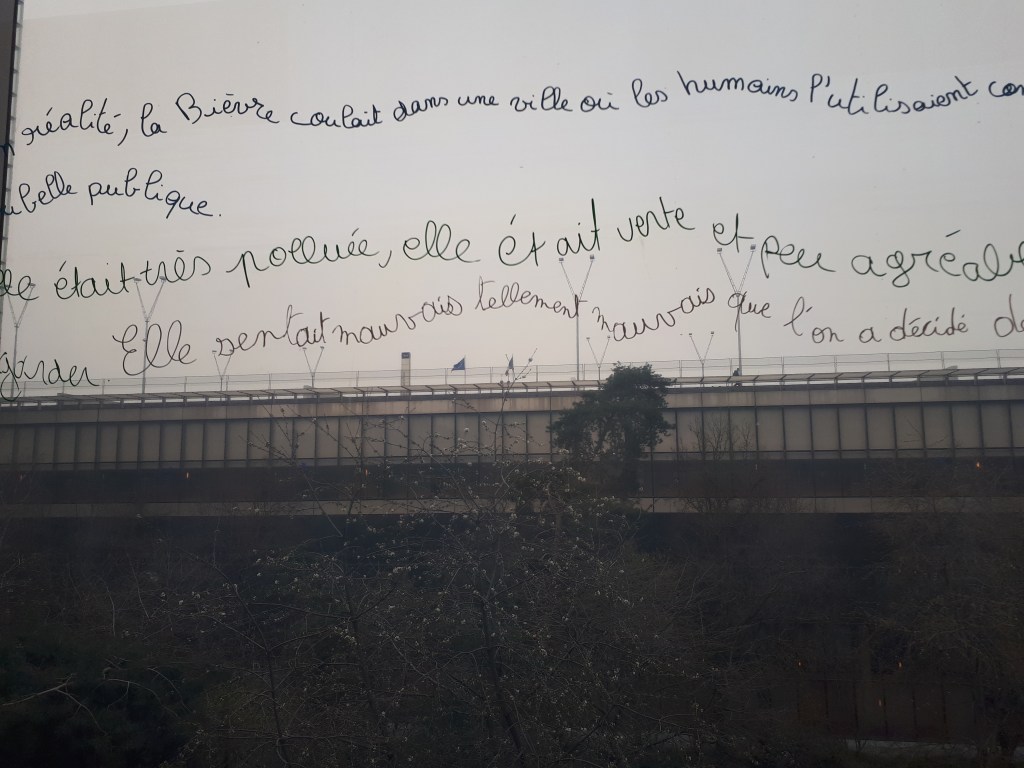 réalité, la Bièvre coulait dans une ville où les humains l'utilisaient
publique.
était très polluée, elle était verte et peu
Elle sentait mauvais tellement mauvais que l'on a décidé